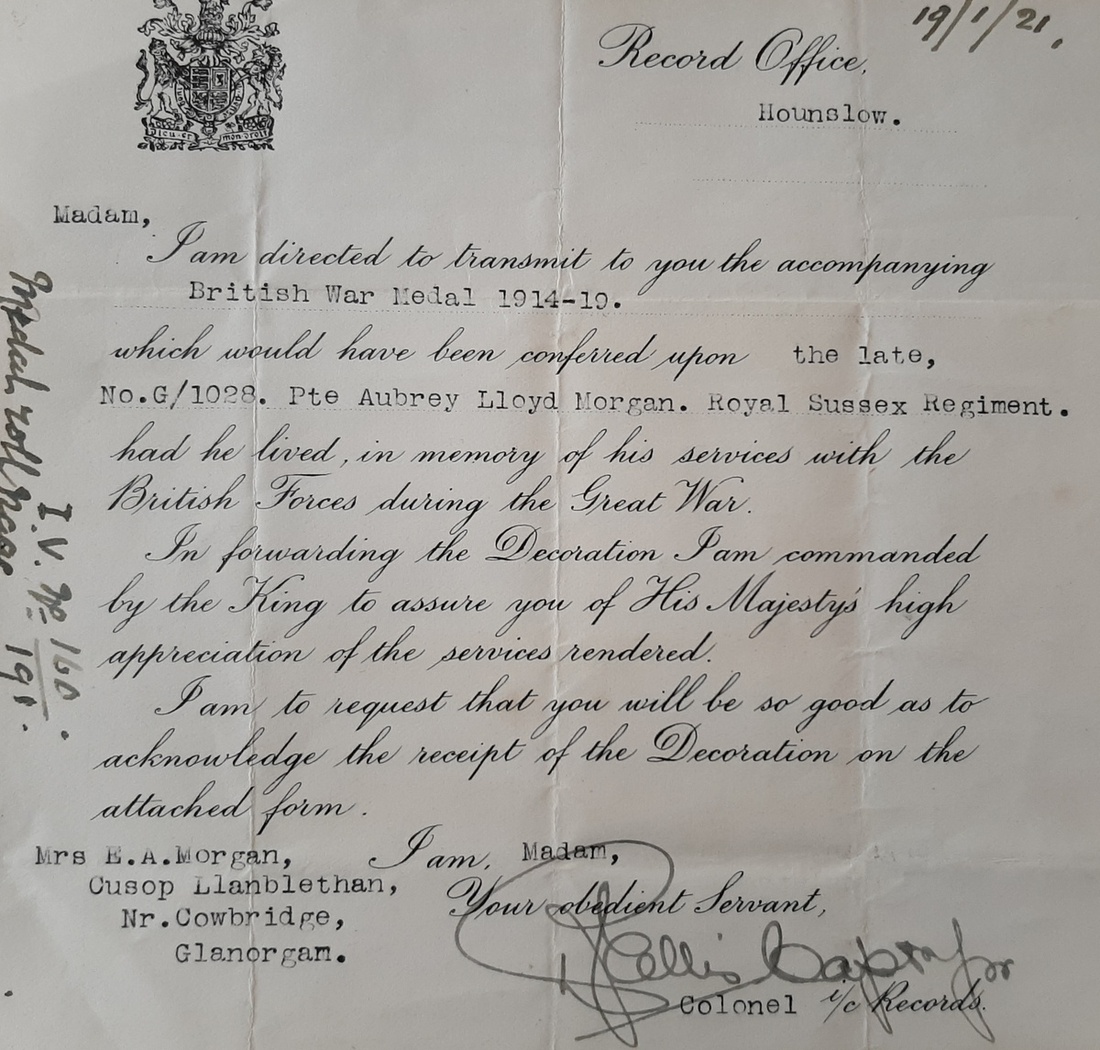 19/1/21.
Record Office,
Hounslow.
Dieu et mon droit
Madam,
I am directed to transmit to you the accompanying
British War Medal 1914-19.
which would have been conferred upon the late,
No.G/1028. Pte Aubrey Lloyd Morgan. Royal Sussex Regiment.
had he lived, in memory of his services with the
British Forces during the Great War.
In forwarding the Decoration I am commanded
by the King to assure you of His Majesty's high
appreciation of the services rendered.
I am to request that you will be so good as to
acknowledge the receipt of the Decoration on the
attached form.
Mrs E.A.Morgan,
Cusop Llanblethan,
Nr.Cowbridge,
Glanorgam.
I am, Madam,
Your obedient Servant,
Ellis Capt for
Colonel i/c Records.
Medal roll Page 191.
I.V. No 160.